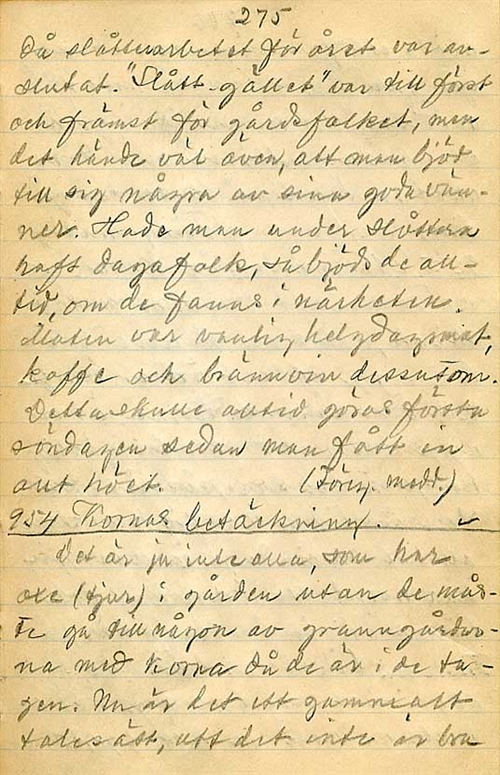 275
då slåtterarbetet för året var av-
slutat. "Slått-gället" var till först
och främst för gårdsfolket, men
det hände väl även, att man bjöd
till sig några av sina goda vän-
ner. Hade man under slåttern
haft dagafolk, så bjöds de all-
tid, om de fanns i närheten.
Maten var vanlig helgdagsmat,
kaffe och brännvin dessutom.
Detta skulle alltid göras första
söndagen sedan man fått in
allt höet. (Föreg. medd.)
954 Kornas betäckning.
Det är ju inte alla, som har
oxe (tjur) i gården utan de mås-
te gå till någon av granngårdar-
na med korna då de är i de ta-
gen. Nu är det ett gammalt
talesätt, att det inte är bra